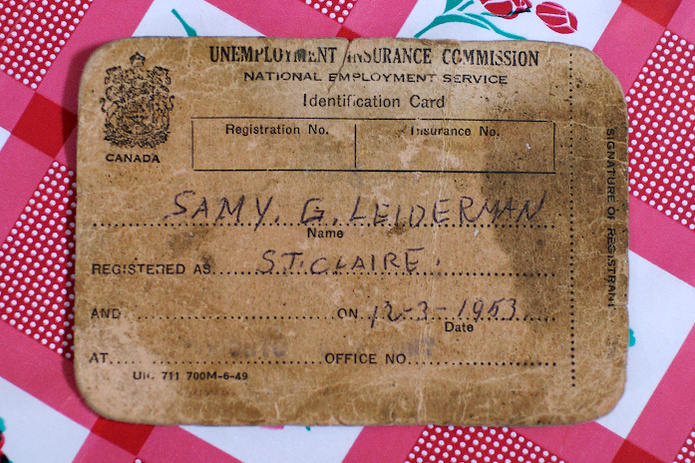 UNEMPLOYMENT INSURANCE COMMISSION
NATIONAL EMPLOYMENT SERVICE
Identification Card
CANADA
Registration No. Insurance No.
SAMY. G. LEIDERMAN
Name
REGISTERED AS ST. CLAIRE.
AND ON 12-3-1953
Date
AT OFFICE NO.
711 700M-6-49
SIGNATURE OF REGISTRANT